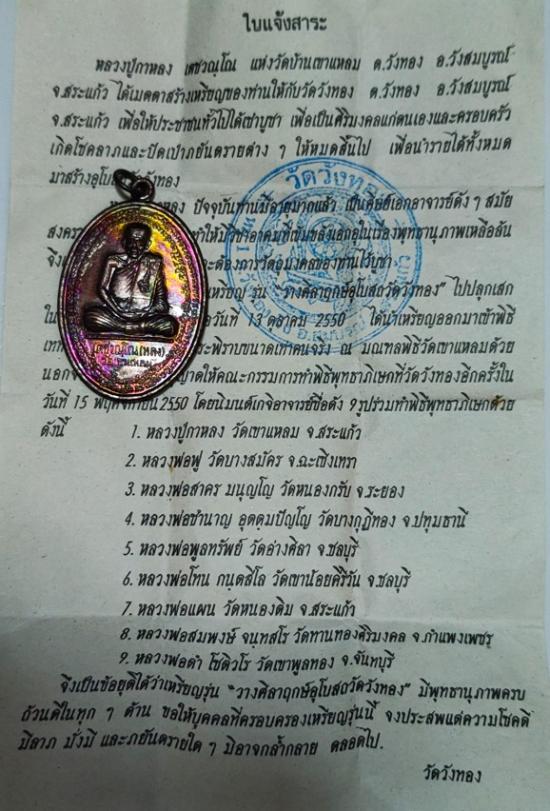 ใบแจ้งสาระ
หลวงปู่กาหลง เตชวณฺโณ แห่งวัดบ้านเขาแหลม ต.วังทอง อ.วังสมบูรณ์
จ.สระแก้ว ได้เมตตาสร้างเหรียญของท่านให้กับวัดวังทอง ต.วังทอง อ.วังสมบูรณ์
จ.สระแก้ว เพื่อให้ประชาชนทั่วไปได้เช่าบูชา เพื่อเป็นศิริมงคลแก่ตนเองและครอบครัว
เกิดโชคลาภและปัดเป่าภยันตรายต่าง ๆ ให้หมดสิ้นไป เพื่อนำรายได้ทั้งหมด
มาสร้างอุโบสถวัดวังทอง
หลง ปัจจุบันท่านมีอายุมากแล้ว เป็นศิษย์เอกอาจารย์ดัง ๆ สมัย
สงคร ในเรื่องพุทธานุภาพเหลือล้น
จึง จะต้องการวัตถุมงคลของท่านไว้บูชา
เหรียญ รุ่น "วางศิลาฤกษ์อุโบสถวัดวังทอง" ไปปลุกเสก
ใน วันที่ 13 ตุลาคม 2550 ได้นำเหรียญออกมาเข้าพิธี
เท ระพิราบขนาดเท่าคนจริง ณ มณฑลพิธีวัดเขาแหลมด้วย
นอกจ ญาตให้คณะกรรมการทำพิธีพุทธาภิเษกที่วัดวังทองอีกครั้งใน
วันที่ 15 พฤศจิกายน 2550 โดยนิมนต์เกจิอาจารย์ชื่อดัง 9 รูปร่วมทำพิธีพุทธาภิเษกด้วย
ดังนี้
1. หลวงปู่กาหลง วัดเขาแหลม จ.สระแก้ว
2. หลวงพ่อฟู วัดบางสมัคร จ.ฉะเชิงเทรา
3. หลวงพ่อสาคร มนุญโญ วัดหนองกรับ จ.ระยอง
4. หลวงพ่อชำนาญ อุตฺตมปัญโญ วัดบางกุฎีทอง จ.ปทุมธานี
5. หลวงพ่อพูลทรัพย์ วัดอ่างศิลา จ.ชลบุรี
6. หลวงพ่อโทน กนฺตสีโล วัดเขาน้อยคีรีวัน จ.ชลบุรี
7. หลวงพ่อแผน วัดหนองติม จ.สระแก้ว
8. หลวงพ่อสมพงษ์ จนฺทสโร วัดทานทองศิริมงคล จ.กำแพงเพชร
9. หลวงพ่อดำ โชติวโร วัดเขาพูลทอง จ.จันทบุรี
จึงเป็นข้อยุติได้ว่าเหรียญรุ่น "วางศิลาฤกษ์อุโบสถวัดวังทอง" มีพุทธานุภาพครบ
ถ้วนดีในทุก ๆ ด้าน ขอให้บุคคลที่ครอบครองเหรียญรุ่นนี้ จงประสพแต่ความโชคดี
มีลาภ มั่งมี และภยันตรายใด ๆ มิอาจกล้ำกลาย ตลอดไป.
วัดวังทอง
วัดวังทอง